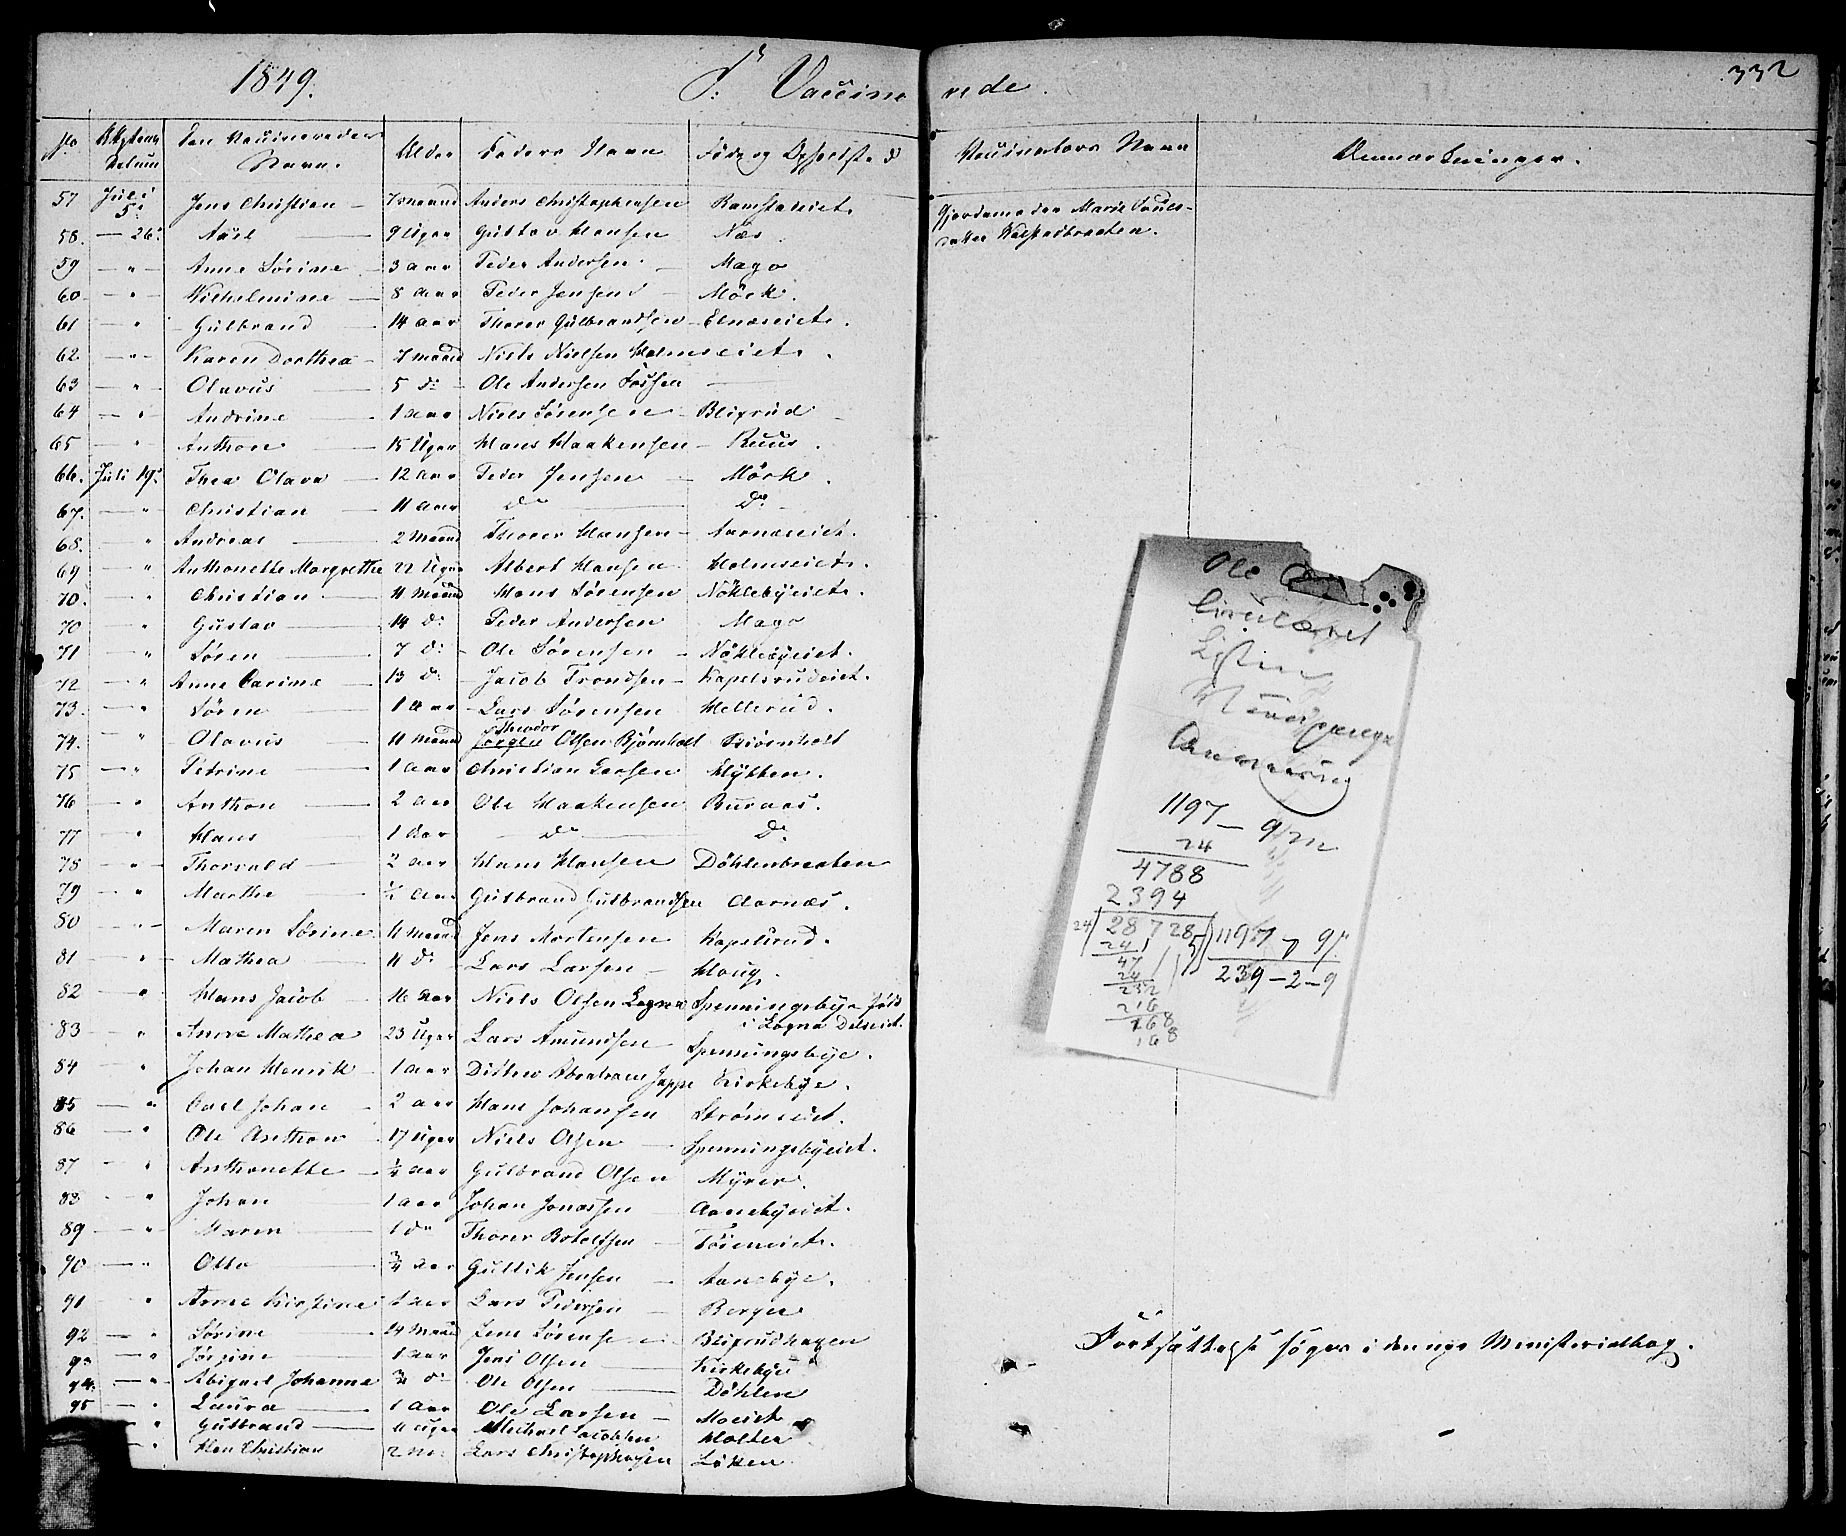 1849.
Vaccine rede.
332
No Attestens Datum Den Vaccineredes Navn. Alder Faders Navn Føde og Opholdsted Vaccinators Navn Anmærkninger.
57 Juli 5: Jens Christian 7 maaned Anders Christophersen Ramstadeiet. Gjordemoder Marie Pouls-
58. — 26: Axil 9 Uger Gustav Hansen Næs datter Valstadbraaten.
59 — " — Anne Sørine — 3 aar Peder Andersen — Mago
60 — " — Wilhelmine — 8 aar Peder Jensen — Mörk.
61 — " Gulbrand 14 aar Thorer Gulbrandsen — Elnæseiet.
62. — " — Karen Dorthea — 7 maaned Niels Nielsen Holmseiet.
63 — " Olavus — 5 do Ole Andersen Fossen —
64 — " Andrine — 1 aar Niels Sørensen — Bligrud
65 — " Anthon — 15 Uger Hans Haakensen — Ruus.
66. Juli 19: Thea Olava — 12 aar Peder Jensen — Mörk
67. — " Christian — 11 aar do — Do
68. — " Andreas — 2 maaned Thorer Hansen — Aarnæseiet.
69 — " Anthonette Margrethe 22 Uger Albert Hansen Holmseiet.
70. — " Christian — 11 maaned Hans Sørensen Nöklebyeiet.
70 — " Gustav — 14 do Peder Andersen Mago
71 — " Søren — 7 do — Ole Sørensen — Nöklebyeiet.
72 — " Anne Carine — 13 do Jacob Trondsen — Kapelsrudeiet.
73. — " Søren — 1 aar — Lars Sørensen Hellerud.
74. — " Olavus — 11 maaned Theodor Jørgen Olsen Bjørnholt Biørnholt
75 — " Petrine — 1 aar Christian Larsen Hytten.
76 — " Anthon — 2 aar Ole Haakensen Buraas.
77 — " Hans 1 aar — do — Do
78 — " Thorvald — 2 aar Hans Hansen — Döhlenbraaten
79 — " Marthe — 1/2 aar Gulbrand Gulbrandsen Aarnæs.
80 — " — Maren Sørine 11 maaned Jens Mortensen Kapelsrud.
81 — " Mathea — 11 do Lars Larsen — Houg.
82 — " Hans Jacob — 16 aar Niels Olsen Sogna Spenningsbye født i Sogna
83 — " Anne Mathea 23 Uger Lars Amundsen Spenningsbye.
84 — " Johan Henrik — 1 aar Ditlew Abraham Jappe Kirkebye.
85 — " Carl Johan — 2 aar Hans Johansen Strømeiet.
86 — " Ole Anthon — 17 Uger Niels Olsen — Spenningsbyeiet.
87 — " Anthonette — 1/4 aar Gulbrand Olsen Myrer.
88 — " Johan — 1 aar Johan Jonassen Aanebyeiet.
89 — " Maren — 1 do Thorer Botolfsen —
90 — " Otto — 3/4 aar Gullik Jensen — Aanebye.
91 — " Anne Kirstine 1 aar Lars Pedersen — Berger
92 — " Sørine — 14 maaned Jens Sørensen Bligrudhagen
93 — " Jørgine — 1 aar Jens Olsen — Kirkebye
94. — " Abigael Johanne 3/4 do Ole Olsen — Döhlen
95 — " Laura — 1 aar Ole Larsen — Moeiet
— " Gulbrand — 11 Uger Michael Jacobsen Holter
" Hen Christian 2 Lars Christophersen Löken
Fortsættelse søges i den nye Ministerialbog.
Ole
Circulæret
Listen
1197 — 9/
24
4788
2394
24 28728 5 1197 — 9/
24 239 — 2 — 9
47
24
232
216
168
168